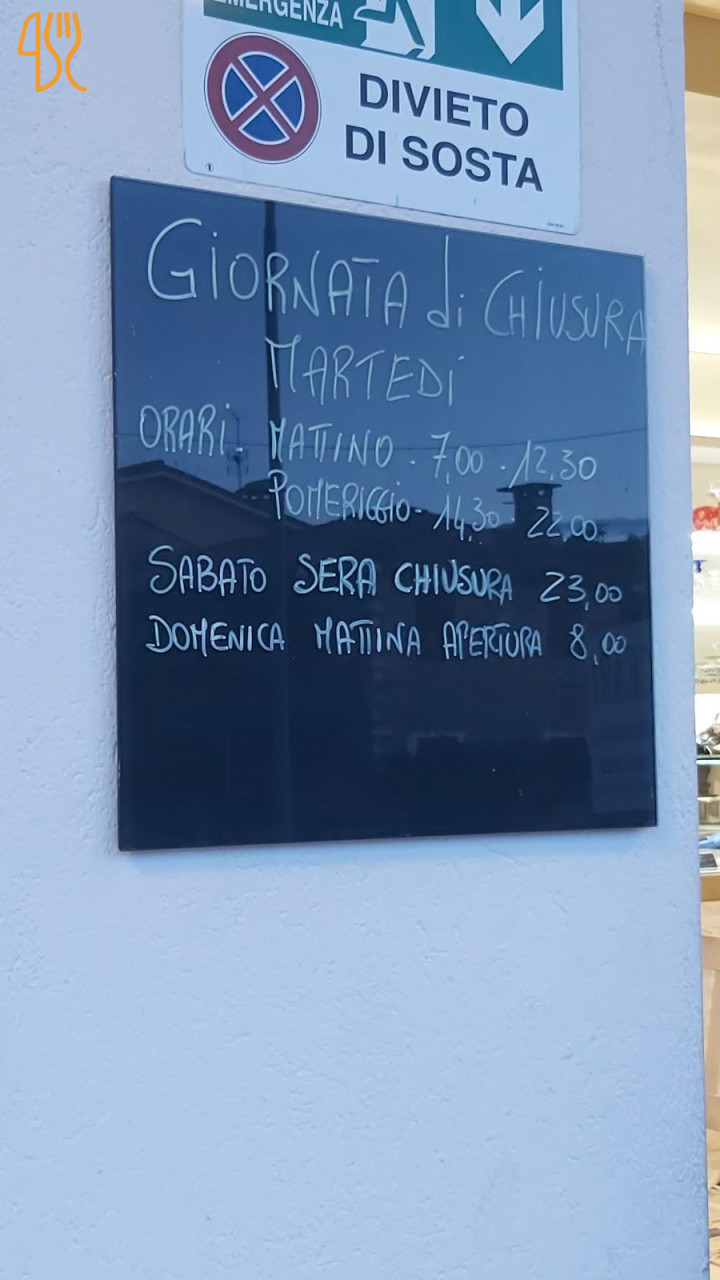 EMERGENZA
DIVIETO
DI SOSTA
GIORNATA di CHIUSURA
MARTEDÍ
ORARI MATTINO - 7,00 - 12,30
POMERIGGIO - 14,30 22,00
SABATO SERA CHIUSURA 23,00
DOMENICA MATTINA APERTURA 8,00